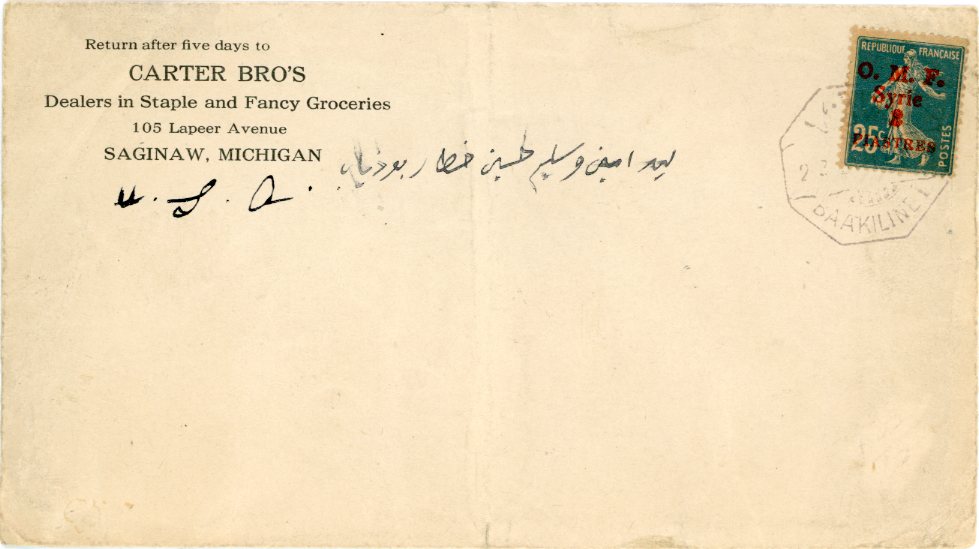 Return after five days to
CARTER BRO'S
Dealers in Staple and Fancy Groceries
105 Lapeer Avenue
SAGINAW, MICHIGAN
U. S. A.
امين وسليم حسين خطار
REPUBLIQUE FRANCAISE
O. M. F.
Syrie
2
PIASTRES
25c
POSTES
BAAKILINE